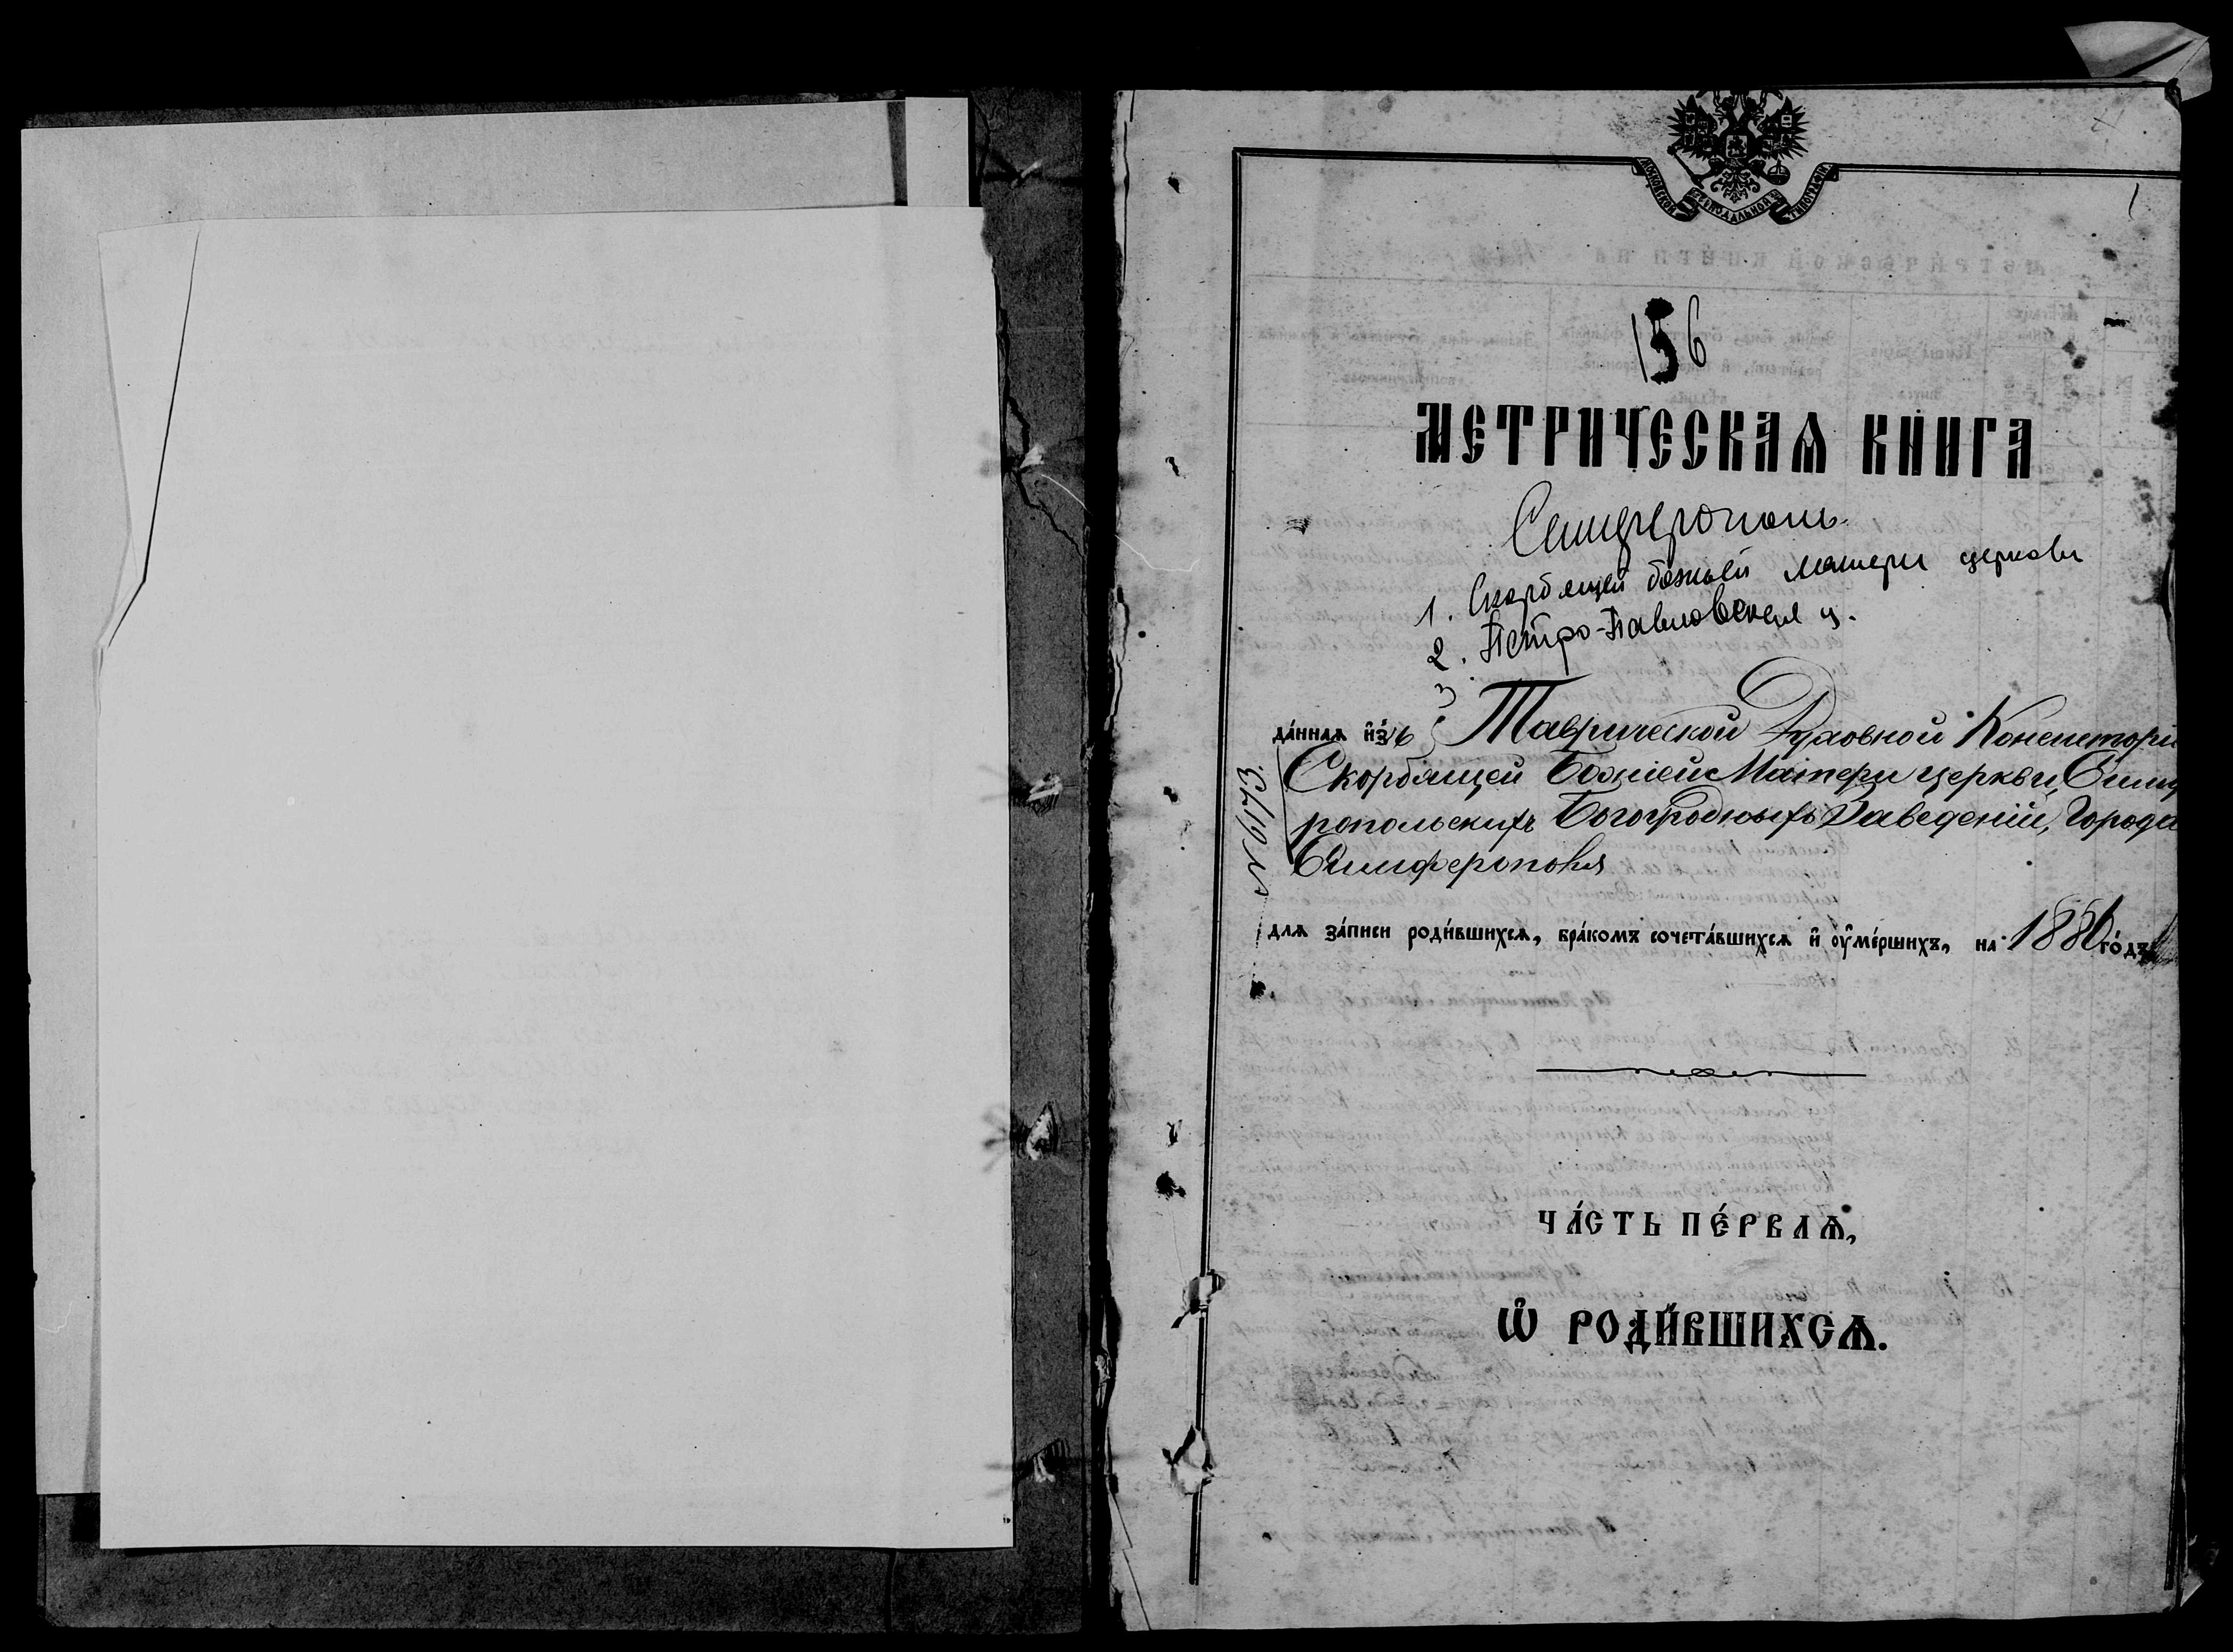 МОСКОВСКОЙ СѴНОДАЛЬНОЙ ТИПОГРАФІИ
1
156
МЕТРИЧЕСКАѦ КНИГА
Симферополь
1. Скорбящей божьей матери церкви
2. Петро-Павловская ц.
3
да́нная и҆зъ Таврической Духовной Консисторіи
Скорбящей Божіей Матери церкви, Симф
ропольскихъ Богоугодныхъ Заведеній, Города
Симферополя
№ 6173.
для за́писи роди́вшихсѧ, бра́комъ сочета́вшихсѧ и҆ ᲂу҆ме́ршихъ, на 1886 го́дъ
ЧА́СТЬ ПЕ́РВАѦ,
Ѽ РОДИ́ВШИХСѦ.